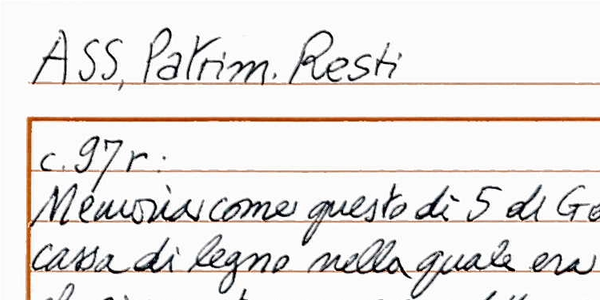 ASS, Patrim. Resti
c. 97r:
Memoria come questo di 5 di Ge
cassa di legno nella quale era